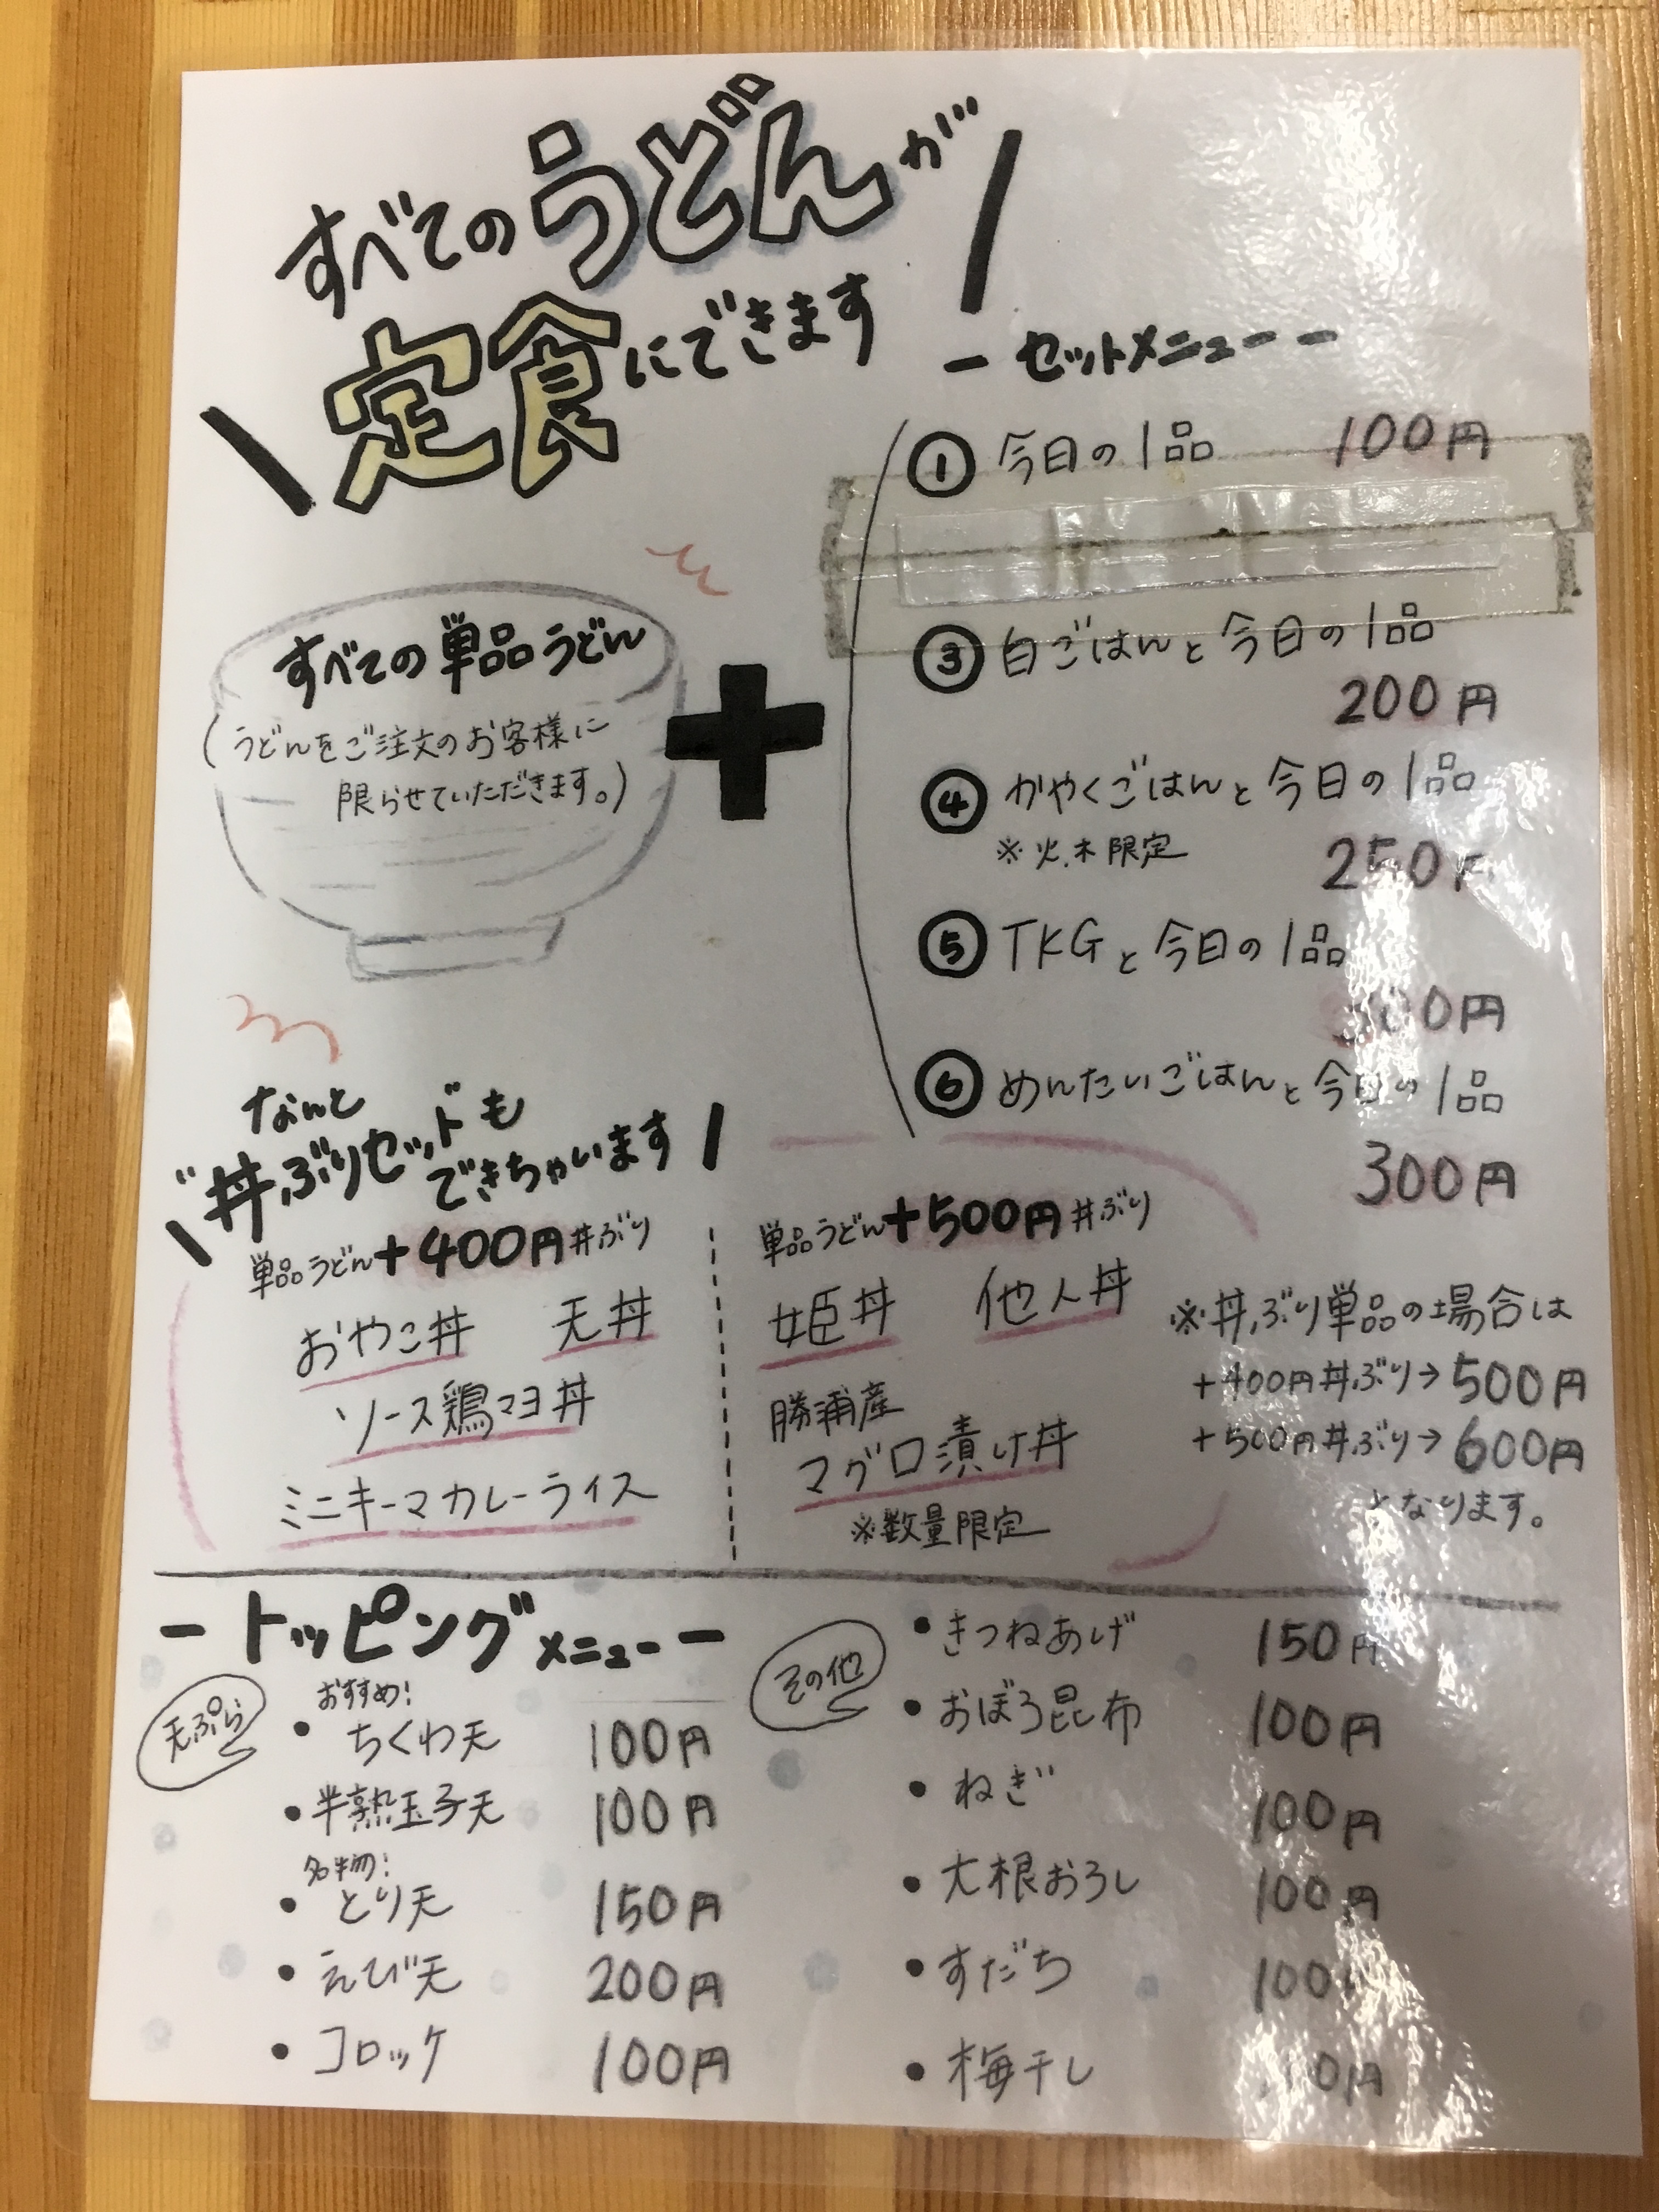 すべてのうどんが
定食にできます
すべての単品うどん
(うどんをご注文のお客様に
限らせていただきます。)
+
ーセットメニューー
① 今日の1品 100円
③ 白ごはんと今日の1品
200円
④ かやくごはんと今日の1品
※火.木限定 250円
⑤ TKGと今日の1品
00円
⑥ めんたいごはんと今日の1品
300円
なんと
丼ぶりセットも
できちゃいます
単品うどん+400円丼ぶり
おやこ丼 天丼
ソース鶏マヨ丼
ミニキーマカレーライス
単品うどん+500円丼ぶり
姫丼 他人丼
勝浦産
マグロ漬け丼
※数量限定
※丼ぶり単品の場合は
+400円丼ぶり→500円
+500円丼ぶり→600円
となります。
ートッピングメニューー
天ぷら
おすすめ!
・ちくわ天 100円
・半熟玉子天 100円
名物!
・とり天 150円
・えび天 200円
・コロッケ 100円
その他
・きつねあげ 150円
・おぼろ昆布 100円
・ねぎ 100円
・大根おろし 100円
・すだち 100
・梅干し